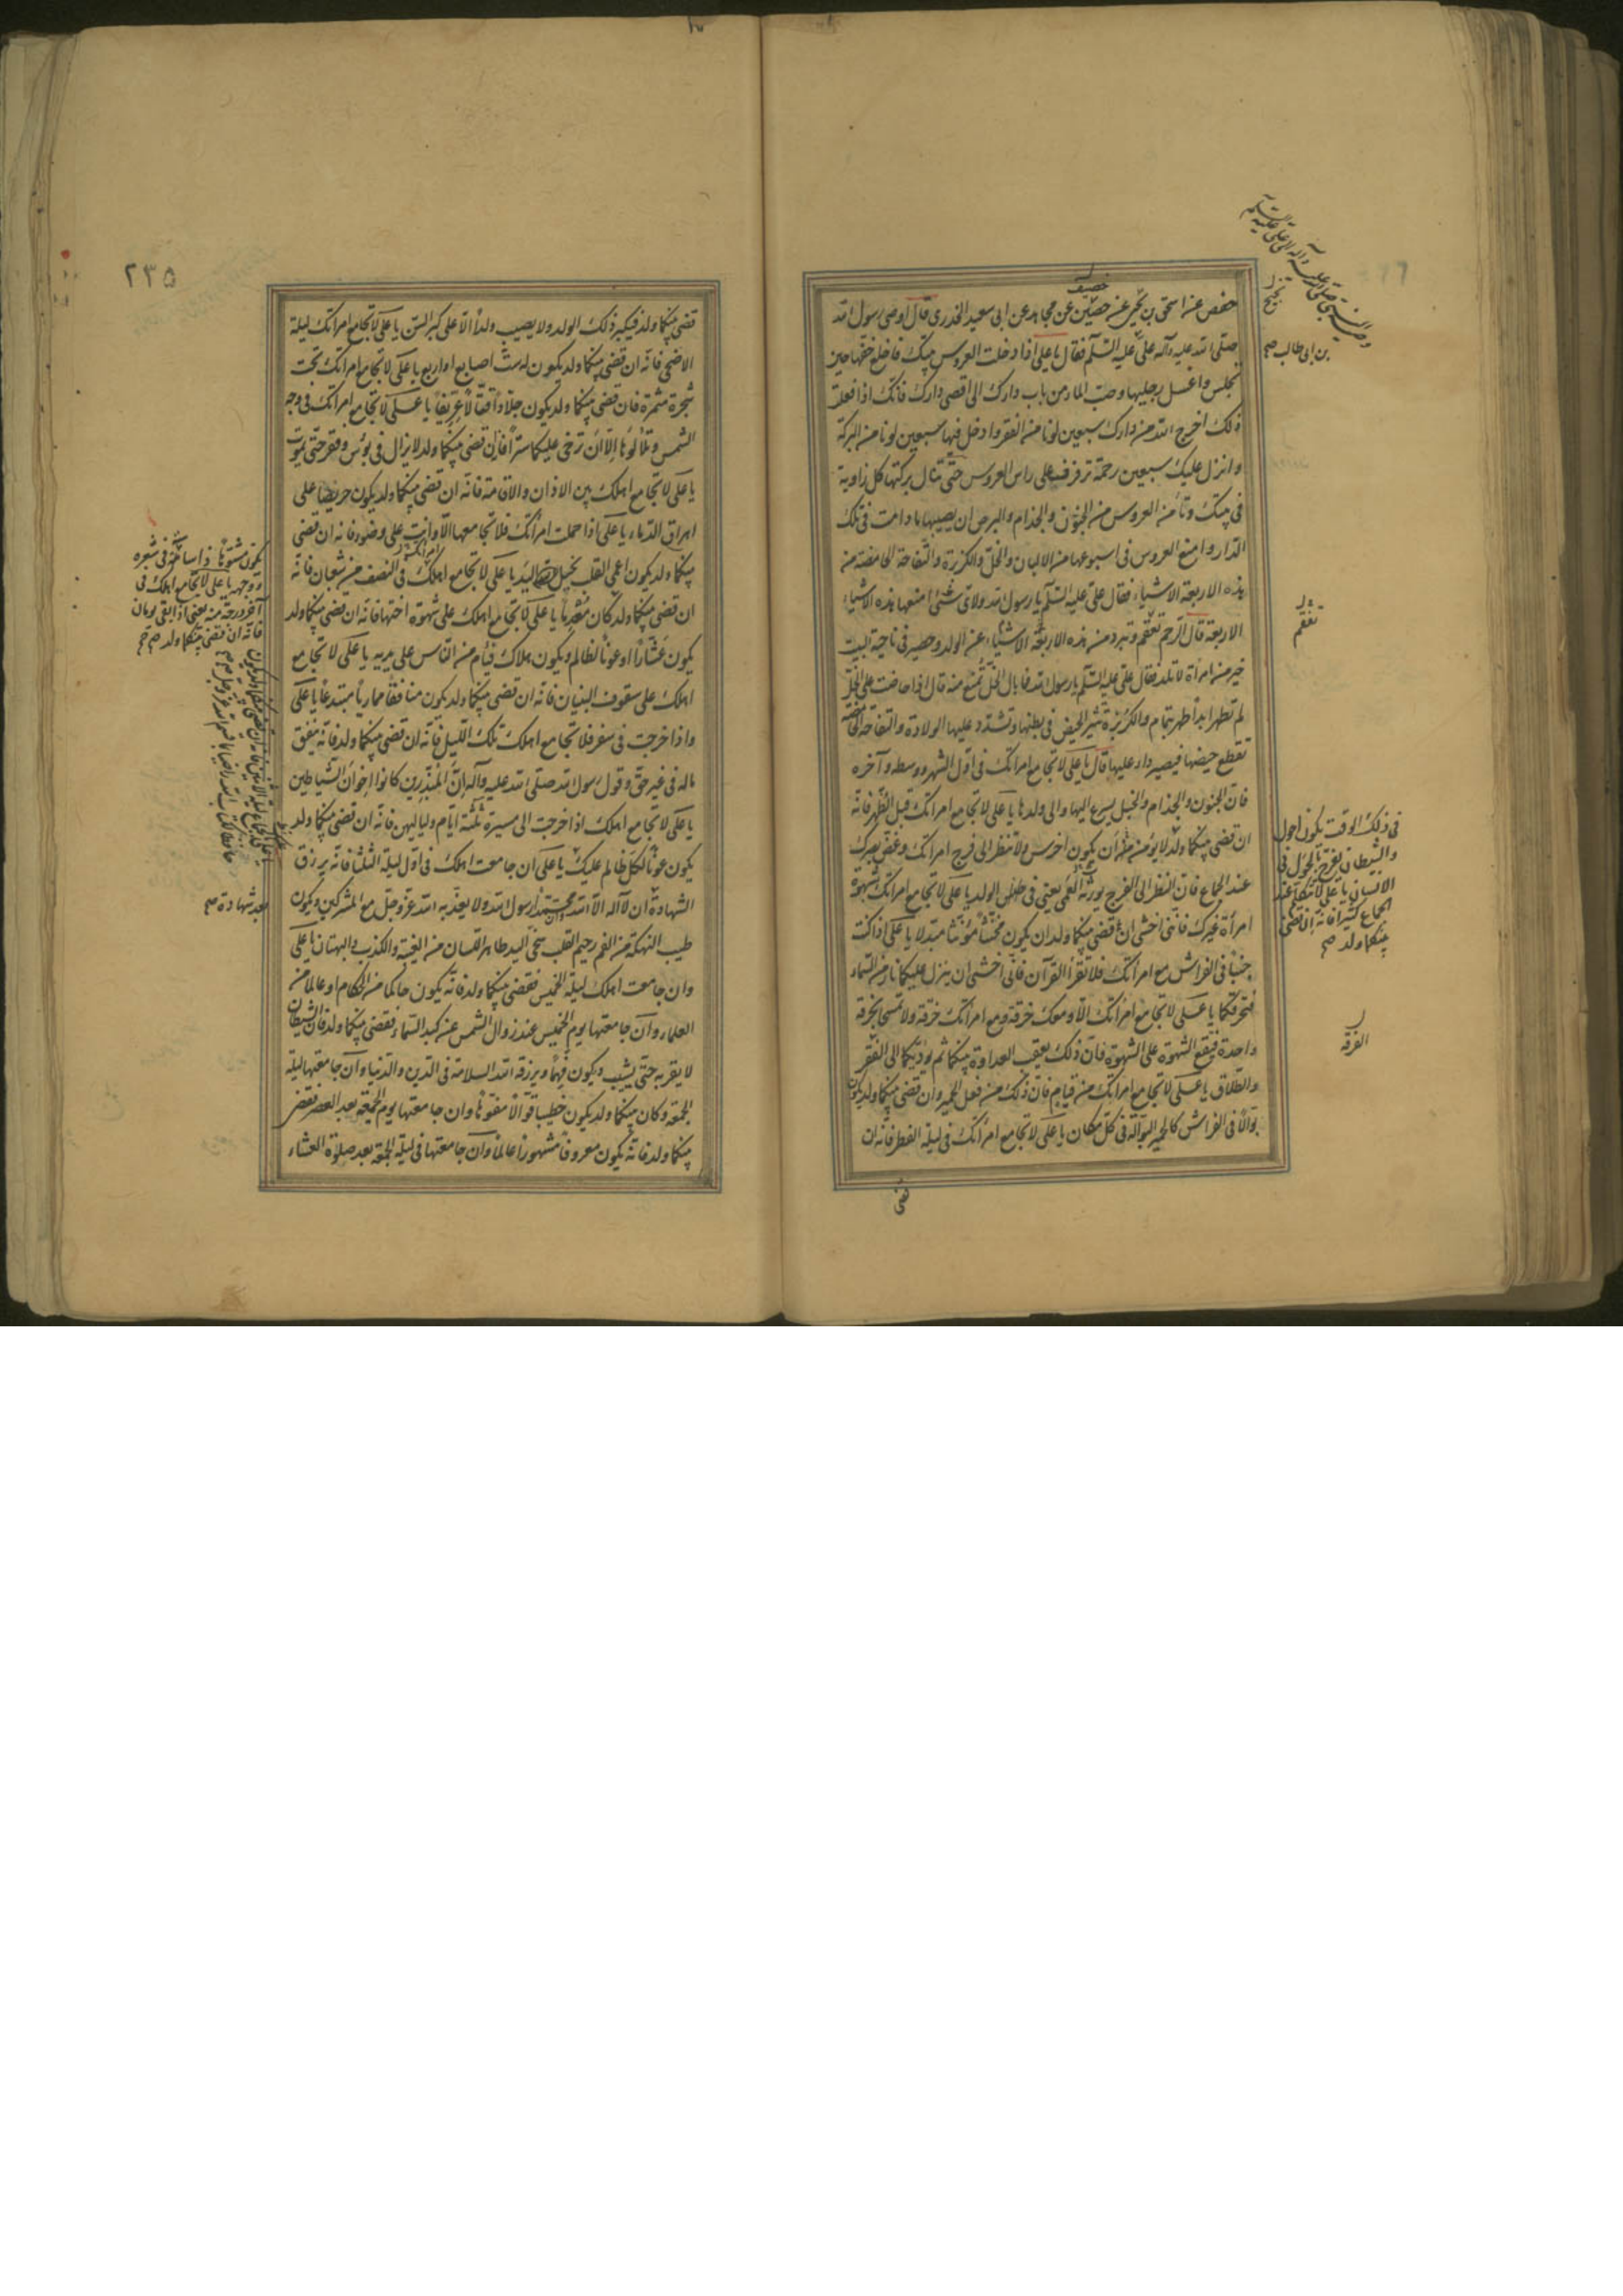 حفص عن اسحق بن نجيح عن حصين عن مجاهد عن ابى سعيد الخدرى قال اوصى رسول الله
صلى الله عليه وآله على عليه السلم فقال يا على اذا دخلت العروس بيتك فاخلع خفها حين
تجلس واغسل رجليها وصب الماء من باب دارك الى اقصى دارك فانك اذا فعلت
ذلك اخرج الله من دارك سبعين لونا من الفقر وادخل فيها سبعين لونا من البركة
وانزل عليك سبعين رحمة ترفرف على راس العروس حتى تنال بركتها كل زاوية
فى بيتك وتأمن العروس من الجنون والجذام والبرص ان يصيبها ما دامت فى تلك
الدار وامنع العروس فى اسبوعها من الالبان والخل والكزبرة والتفاحة الحامضة من
هذه الاربعة الاشياء فقال على عليه السلم يا رسول الله ولاى شئ امنعها هذه الاشياء
الاربعة قال لان الرحم تعقم وتبرد من هذه الاربعة الاشياء عن الولد وحصير فى ناحية البيت
خير من امرأة لا تلد فقال على عليه السلم يا رسول الله فما بال الخل تمنع منه قال اذا حاضت على الخل
لم تطهر ابدا طهر بتمام والكزبرة تثير الحيض فى بطنها وتشدد عليها الولادة والتفاحة الحامضة
تقطع حيضها فيصير داء عليها قال يا على لا تجامع امراتك فى اول الشهر ووسطه وآخره
فان الجنون والجذام والخبل يسرع اليها والى ولدها يا على لا تجامع امراتك قبل الظهر فانه
ان قضى بينكما ولد لا يؤمن منه ان يكون اخرس ولا تنظر الى فرج امراتك وغض بصرك
عند الجماع فان النظر الى الفرج يورث العمى يعنى فى الولد يا على لا تجامع امراتك بشهوة
امرأة غيرك فاننى اخشى ان قضى بينكما ولد ان يكون مخنثا مؤنثا متبدلا يا على اذا كنت
جنبا فى الفراش مع امرأتك فلا تقرأ القرآن فانى اخشى ان ينزل عليكما نار من السماء
فتحرقكما يا على لا تجامع امرأتك الا ومعك خرقة ومع امرأتك خرقة ولا تمسحا بخرقة
واحدة فتقع الشهوة على الشهوة فان ذلك يعقب العداوة بينكما ثم يؤديكما الى الفقر
والطلاق يا على لا تجامع امراتك من قيام فان ذلك من فعل الحمير وان قضى بينكما ولد يكون
بوالا فى الفراش كالحمير البوالة فى كل مكان يا على لا تجامع امراتك فى ليلة الفطر فانه ان
بن ابى طالب صح
نجيح
تعقم
فى ذلك الوقت يكون احول
والشيطان يفرح بالحول فى
الانسان يا على لا تتكلم عند
الجماع كثيرا فانه ان قضى
بينكما ولد صح
الفرقة
قضى
٢٣٥
قضى بينكما ولد فيكبر ذلك الولد ولا يصيب ولدا الا على كبر السن يا على لا تجامع امراتك ليلة
الاضحى فانه ان قضى بينكما ولد يكون له ست اصابع او اربع يا على لا تجامع امراتك تحت
شجرة مثمرة فان قضى بينكما ولد يكون جلادا قتالا عريفا يا على لا تجامع امراتك فى وجه
الشمس وتلألؤها الا ان ترخى عليكما سترا فان قضى بينكما ولد لا يزال فى بؤس وفقر حتى يموت
يا على لا تجامع اهلك بين الاذان والاقامة فانه ان قضى بينكما ولد يكون حريصا على
اهراق الدماء يا على اذا حملت امرأتك فلا تجامعها الا وانت على وضوء فانه ان قضى
بينكما ولد يكون اعمى القلب بخيل اليد يا على لا تجامع اهلك فى النصف من شعبان فانه
ان قضى بينكما ولد كان يا على لا تجامع اهلك على شهوة اختها فانه ان قضى بينكما ولد
يكون عشارا او عونا لظالم ويكون هلاك فئام من الناس على يديه يا على لا تجامع
اهلك على سقوف البنيان فانه ان قضى بينكما ولد يكون منافقا مماريا مبتدعا يا على
واذا خرجت فى سفر فلا تجامع اهلك تلك الليل فانه ان قضى بينكما ولد فانه ينفق
ماله فى غير حق وقول رسول الله صلى الله عليه وآله ان المبذرين كانوا اخوان الشياطين
يا على لا تجامع اهلك اذا خرجت الى مسيرة ثلثة ايام ولياليهن فانه ان قضى بينكما ولد
يكون عونا لكل ظالم عليك يا على ان جامعت اهلك فى اول ليلة الثلثا فانه يرزق
الشهادة ان لا اله الا الله وان محمدا رسول الله ولا يعذبه الله عز وجل مع المشركين ويكون
طيب النهكة من الفم رحيم القلب سخى اليد طاهر اللسان من الغيبة والكذب والبهتان يا على
وان جامعت اهلك ليلة الخميس فقضى بينكما ولد فانه يكون حاكما من الحكام او عالما من
العلماء وان جامعتها يوم الخميس عند زوال الشمس عن كبد السماء فقضى بينكما ولد فان الشيطان
لا يقربه حتى يشيب ويكون فهما ويرزقه الله السلامة فى الدين والدنيا وان جامعتها ليلة
الجمعة وكان بينكما ولد يكون خطيبا قوالا مفوها وان جامعتها يوم الجمعة بعد العصر فقضى
بينكما ولد فانه يكون معروفا مشهورا عالما وان جامعتها فى ليلة الجمعة بعد صلوة العشاء
يكون مشوها ذا شامة فى شعره
ووجهه يا على لا تجامع اهلك فى
آخر درجة منه يعنى اذا بقى يومان
فانه ان قضى بينكما ولد صح
بعد شهادة صح